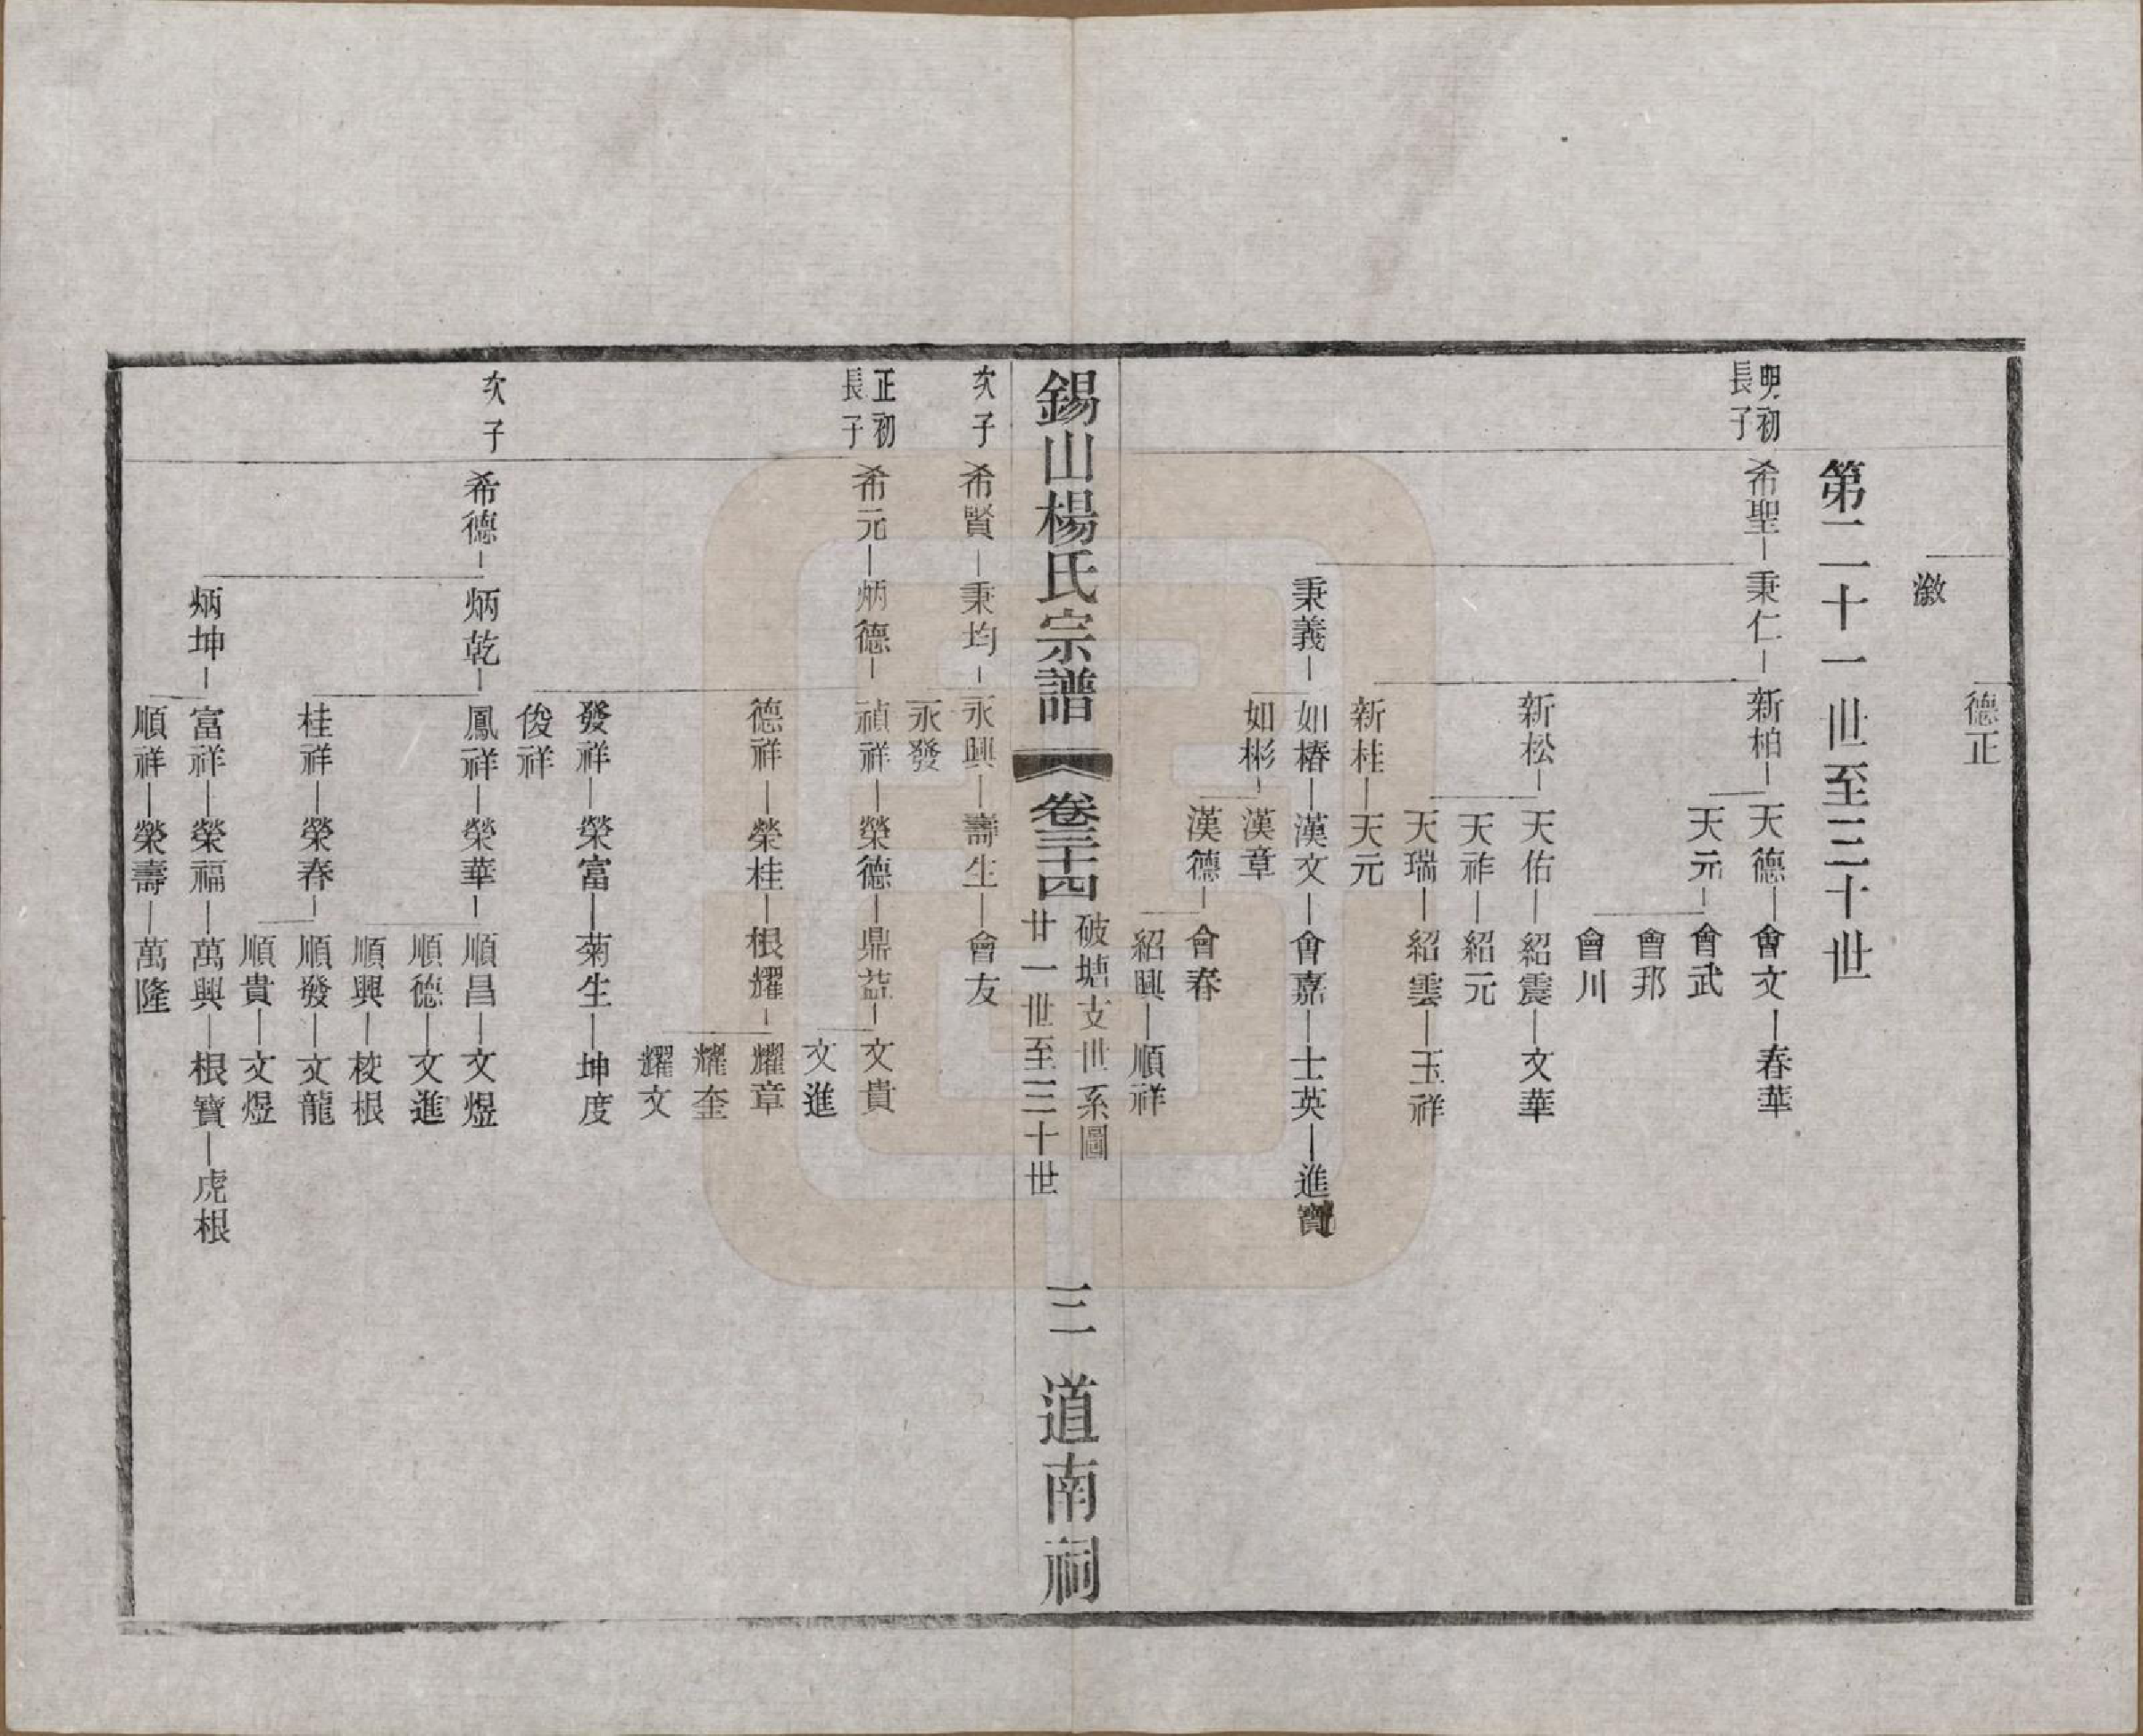 德正
潋
第二十一世至三十世
明初長子
希聖 秉仁 新柏 天德 會文 春華
天元 會武
會邦
會川
新松 天佑 紹震 文華
天祚 紹元
天瑞 紹雲 玉祥
新桂 天元
秉義 如椿 漢文 會嘉 士英 進寶
如彬 漢章
漢德 會春
紹興 順祥
錫山楊氏宗譜 卷三十四 破塘支世系圖 廿一世至三十世 三 道南祠
次子 希賢 秉均 永興 壽生 會友
永發
正初長子
希元 炳德 禎祥 榮德 鼎益 文貴
文進
德祥 榮桂 根耀 耀章
耀奎
耀文
發祥 榮富 菊生 坤度
俊祥
次子 希德 炳乾 鳳祥 榮華 順昌 文煜
順德 文進
順興 校根
桂祥 榮春 順發 文龍
順貴 文煜
炳坤 富祥 榮福 萬興 根寶 虎根
順祥 榮壽 萬隆